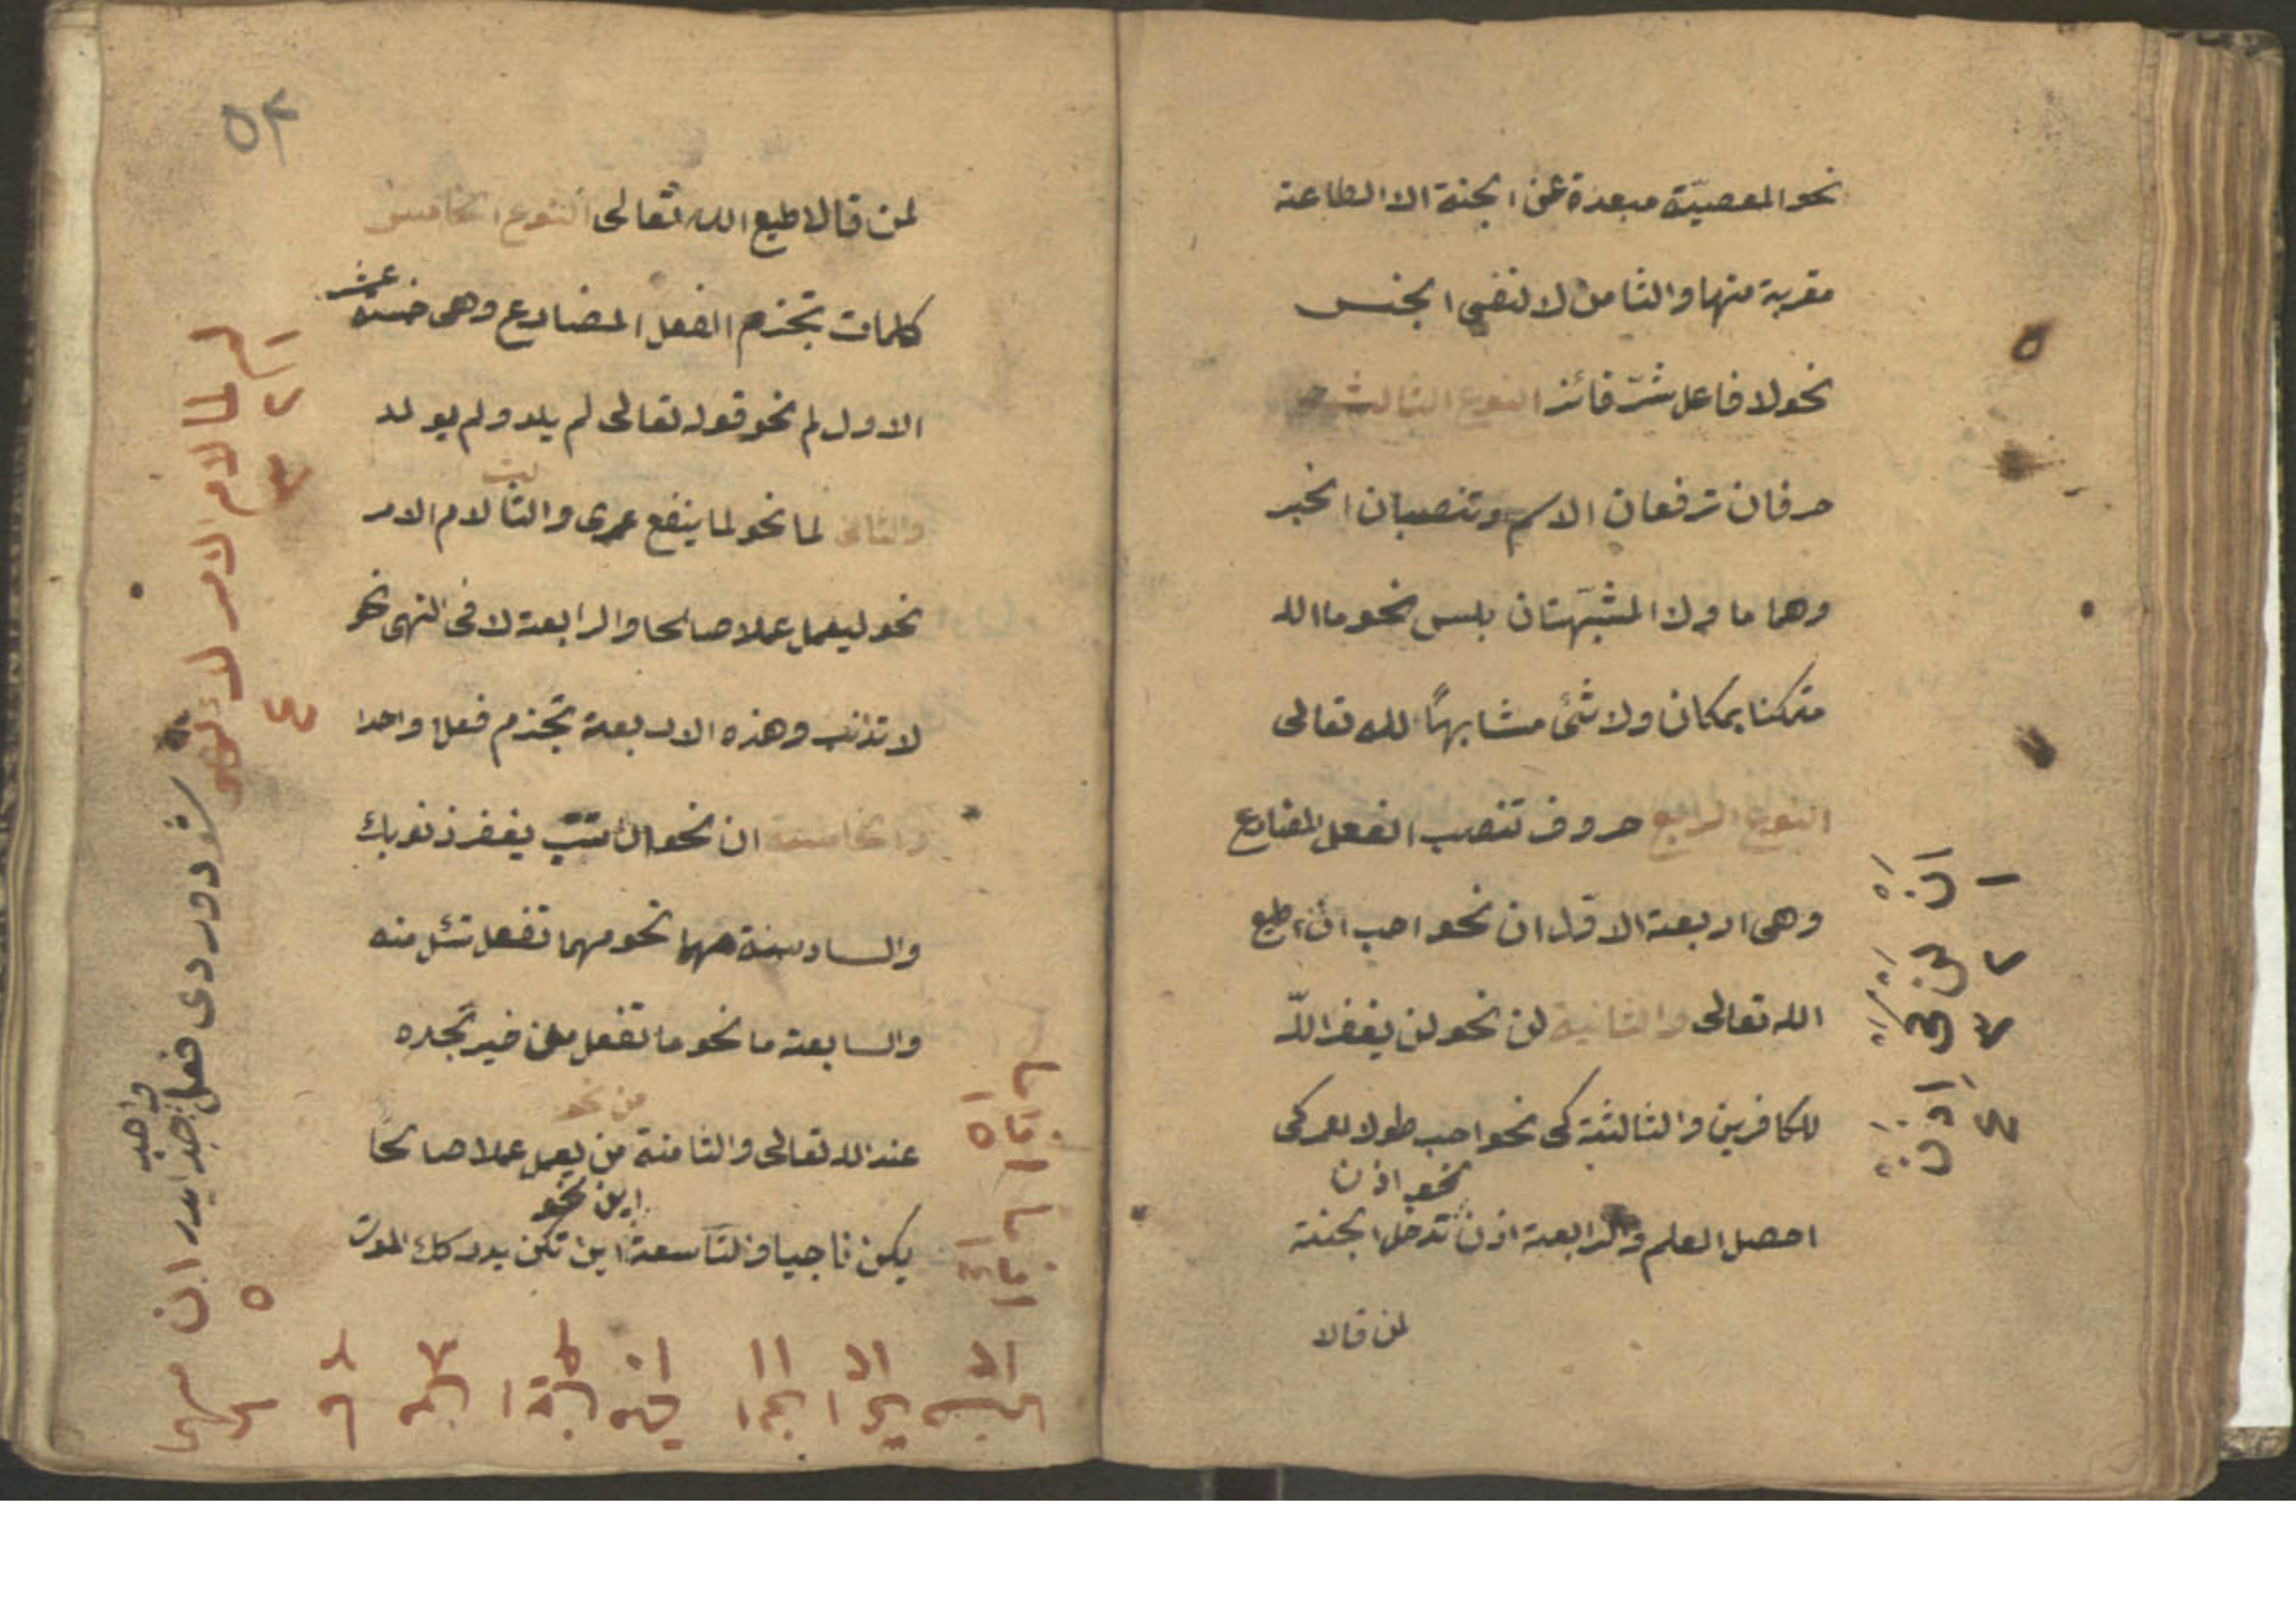 نحو المعصيّة مبعدة عن الجنة الا الطاعة
مقربة منها والثامن لا لنفى الجنس
نحو لا فاعل شرّ فائز النوع الثالث
حرفان ترفعان الاسم وتنصبان الخبر
وهما ما ولا المشبّهتان بليس نحو ما الله
متمكنا بمكان ولا شئ مشابهًا لله تعالى
النوع الرابع حروف تنصب الفعل المضارع
وهى اربعة الاوّل ان نحو احب ان اطيع
الله تعالى والثانية لن نحو لن يغفر اللّه
للكافرين والثالثة كى نحو احب طول العمر كى
نحو اذن
احصل العلم والرابعة اذن تدخل الجنة
لمن قالا
ان لن كى اذن
١ ٢ ٣ ٤
٥٣
لمن قال اطيع الله تعالى النوع الخامس
كلمات تجزم الفعل المضارع وهى خمسة عشر
الاول لم نحو قوله تعالى لم يلد ولم يولد
والثانى لما نحو لما ينفع عمرى والثالث لام الامر
نحو ليعمل عملا صالحا والرابعة لا فى النهى نحو
لا تذنب وهذه الاربعة تجزم فعلا واحدا
والخامسة ان نحو ان تتب يغفر ذنوبك
والسادسة مهما نحو مهما تفعل تسئل منه
والسابعة ما نحو ما تفعل من خير تجده
من نحو
عند الله تعالى والثامنة من يعمل عملا صالحا
اين نحو
يكن ناجيا والتاسعة اين تكن يدركك الموت
لم لما لام الامر لا نهى
١ ٢ ٣ ٤
شو دوردى فعل جزم ايدر ان
واحد
٥
مهما